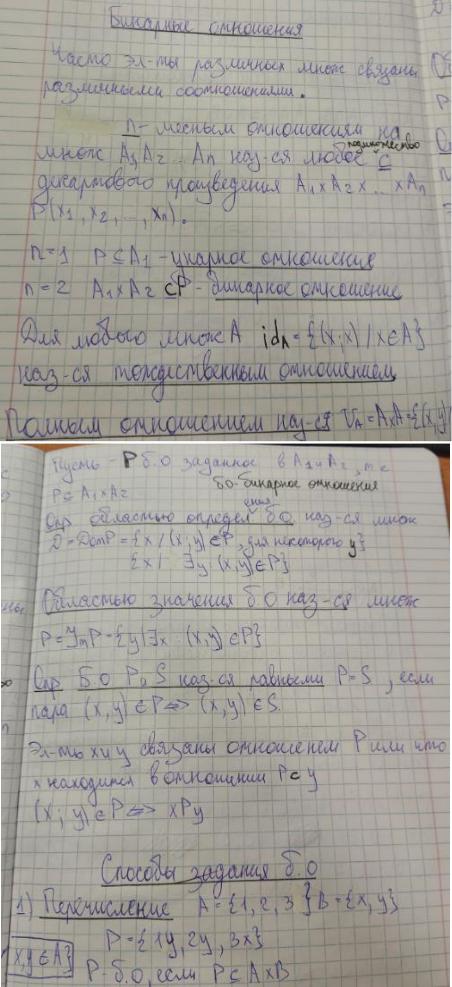 Бинарные отношения
Часто эл-ты различных множ связаны
различными соотношениями.
n-местным отношениям на
множ A1A2...An наз-ся любое подмножество ⊆
декартового произведения A1×A2×...×An
P(x1, x2, ..., xn).
n=1 P⊆A1 - унарное отношения
n=2 A1×A2 ⊆P - бинарное отношение
Для любого множ A idA={(x;x)/x∈A}
наз-ся тождественным отношением
Полным отношением наз-ся UA=A×A={(x,y)/
Пусть - P б.о заданное в A1 и A2, т.е
P⊆A1×A2 бо-бинарное отношения
Опр областью определения бо наз-ся множ
D=DomP={x/(x;y)∈P, для некоторого y}
{x/ ∃y (x,y)∈P}
Областью значения б.о наз-ся множ
P=ImP={y/∃x (x,y)∈P}
Опр Б.О P и S наз-ся равными P=S, если
пара (x,y)∈P<=>(x,y)∈S.
Эл-ты x и y связаны отношением P или что
x находится в отношении P с y
(x;y)∈P<=>xPy
Способы задания б.о
1) Перечисление A={1,2,3} B={x,y}
P={1y,2y,3x}
x,y∈A}
P-б.о, если P⊆A×B